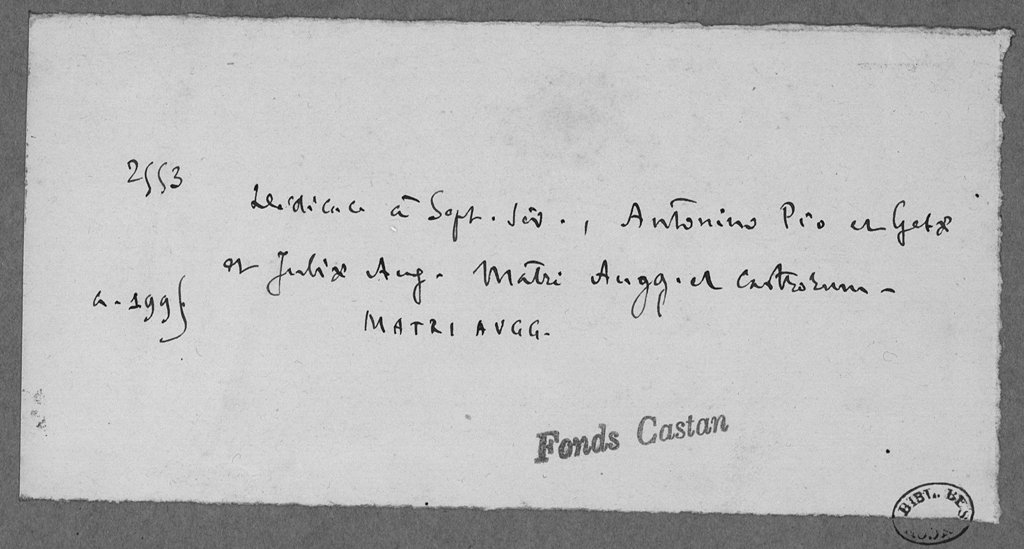 2553
Dédicace à Sept. Sév., Antonino Pio et Getæ
et Juliæ Aug. Matri Augg. et Castrorum -
a. 199
MATRI AVGG.
Fonds Castan
BIBL. BES